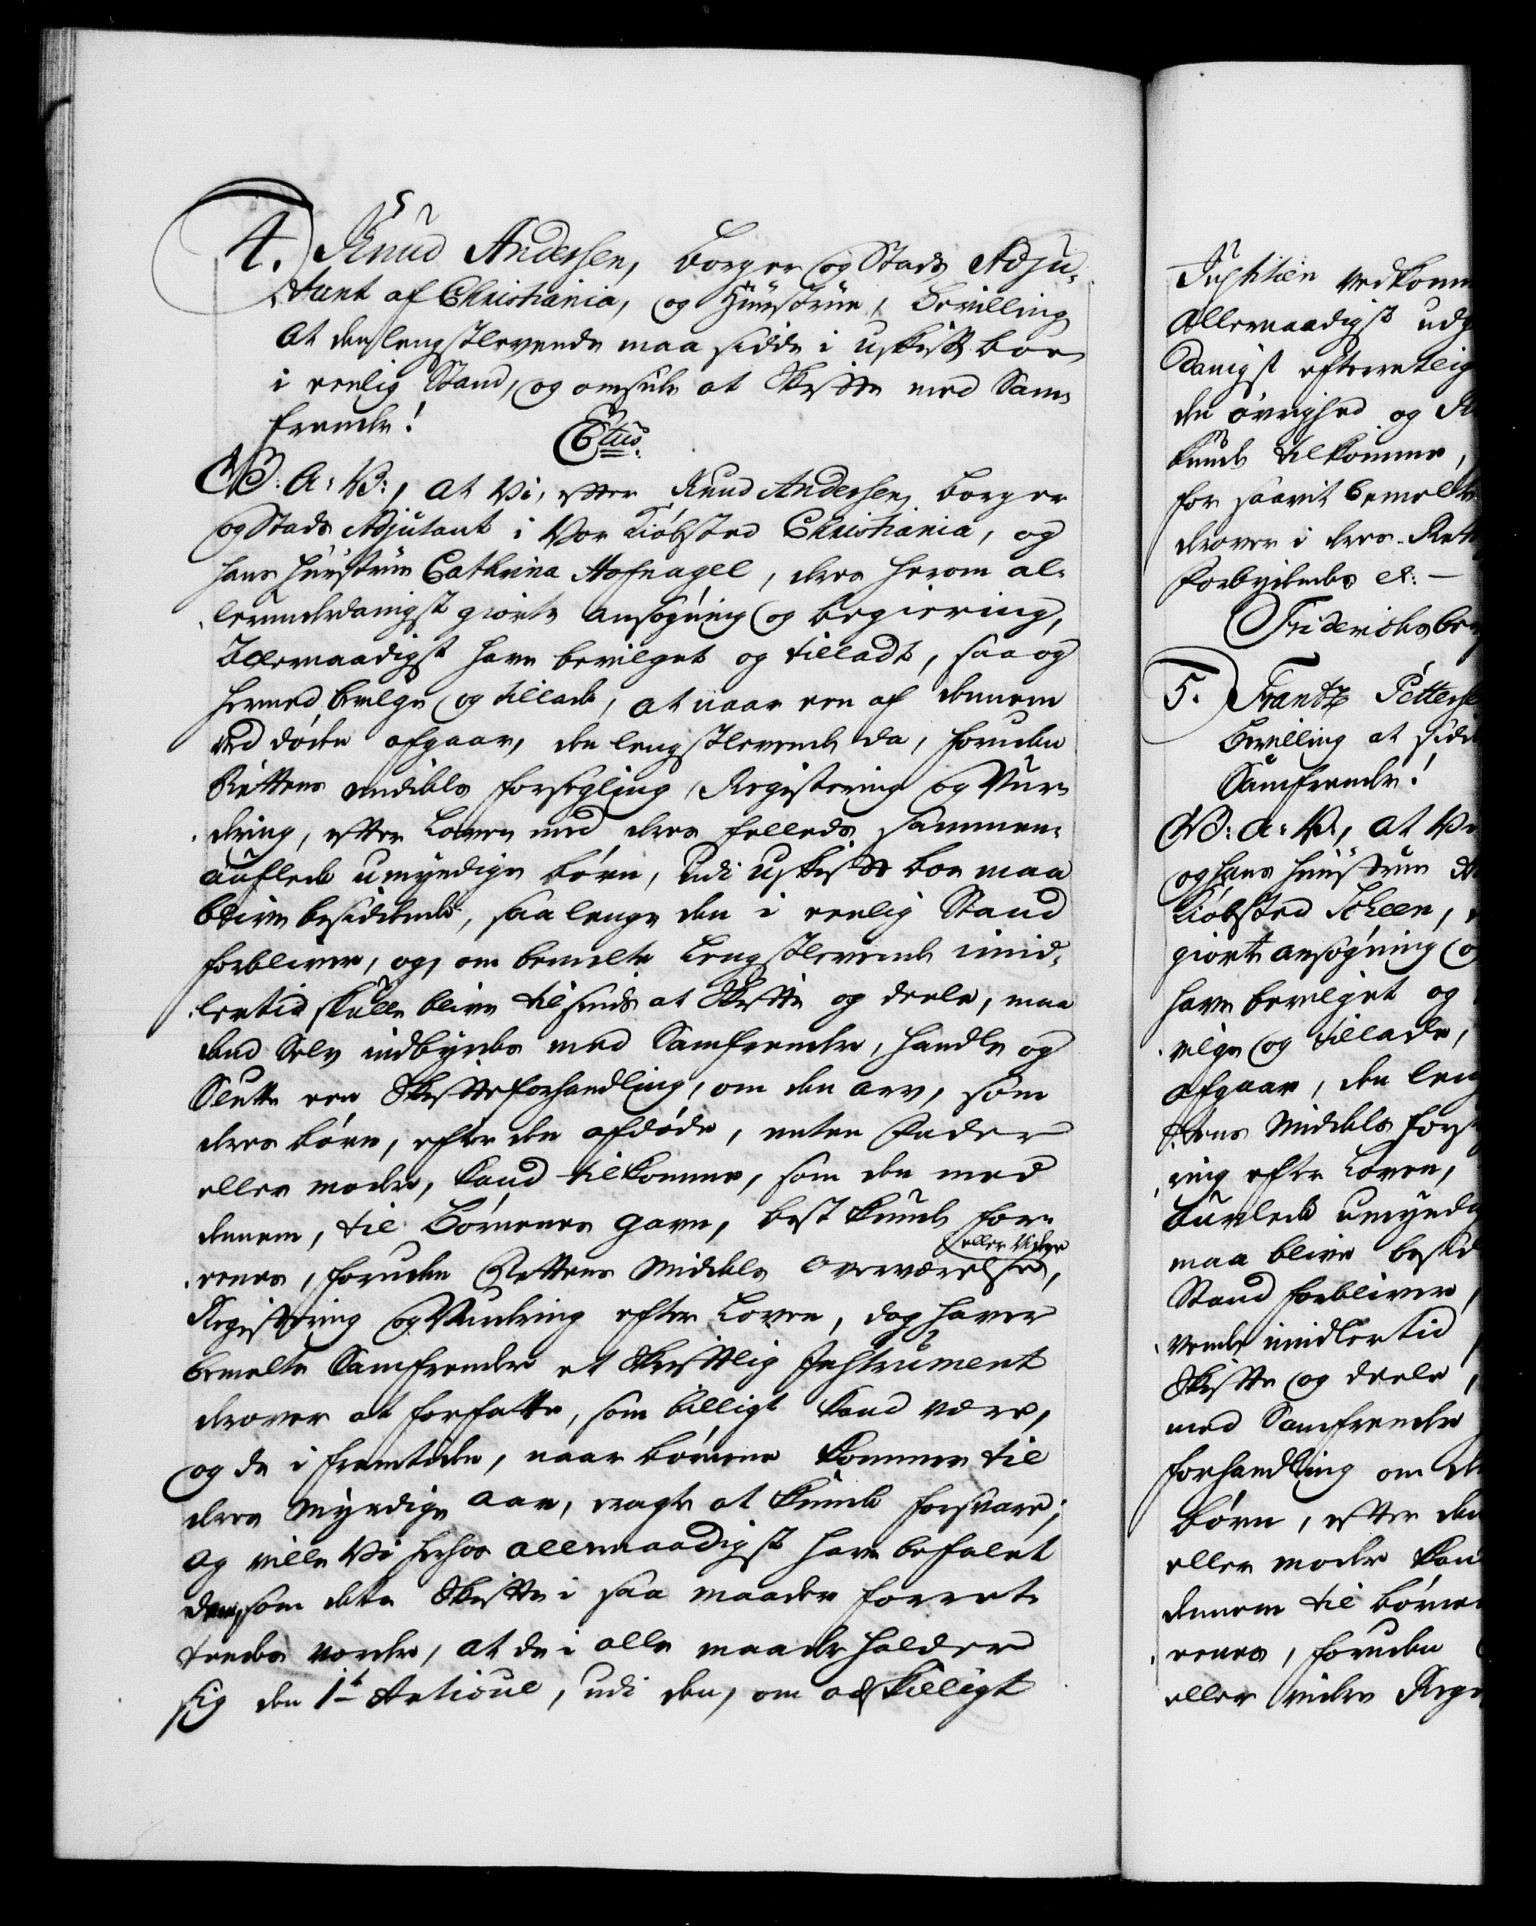 4. Knud Andersen, borger og Stads Adju-
tant af Christiania, og Hüustrüe, Bevilling
at den lengstlevende maa sidde i uskifft boe
i eenlig Stand, og omsider at Skiffte med Sam-
frender!
C7tus.
W: A: V:, at Vi, efter Knud Andersen, borger
og Stads Adjutant i Vor Kiøbsted Christiania, og
hans Hüustrüe Cathrina Hofnagel, deres herom al-
lerunderdanigst giorte ansøgning og begiering,
Allernaadigst have bevilget og tilladt, saa og
hermed bevilge og tillade, at naar een af dennem
ved døden afgaar, den lengstlevende da, foruden
Rettens middels forsegling, Registering og Vur-
dering, efter Loven med deres felleds sammen-
auflede umyndige børn, udi uskifft boe maa
blive besiddende, saa lenge den i eenlig Stand
forbliver, og, om bemelte Lengstlevende imid-
lertid skulle blive tilsinds at Skiffte og deele, maa
dend Selv indbyrdes med Samfrender, handle og
Slutte een Skiffteforhandling, om den arv, som
deres børn, efter den afdøde, enten Fader
eller moder, kand tilkomme, som den med
dennem, til Børnenes gavn, best kunde for-
eenes, foruden Rettens Middels overværelse, eller Videre
Registering og Vurdering efter Loven, dog haver
bemelte Samfrender et Skrifftlig Instrument
derover at forfatte, som billigt kand være,
og de i fremtiden, naar børnene kommer til
deres Myndige aar, eragte at kunde forsvare;
og ville Vi herhos allernaadigst have befalet
dem, som dette Skiffte i saa maader forret-
tendes vorder, at de i alle maade holder
sig den 1t Articul, udi den, om adskilligt
Justitien vedkomm
Allernaadigst udg
danigst efterretlig
den øvrighed og R
kunde tilkomme,
for saavit bemelte
derover i deres Rett
Forbydendes etc: —
Friderichsber
5. Frantz Petterse
Bevilling at sidd
Samfrender!
W: A: V:, at Vi
og hans Hüustrüe A
Kiøbsted Scheen,
giorte ansøgning o
have bevilget og
vilge og tillade,
afgaar, den leng
tens Middels fors
ing efter Loven,
auflede umyndig
maa blive besid
Stand forbliver,
vende imidlertid
Skiffte og deele,
med Samfrender
forhandling om de
børn, efter den
eller moder kan
dennem til børne
eenes, foruden
eller videre Regi